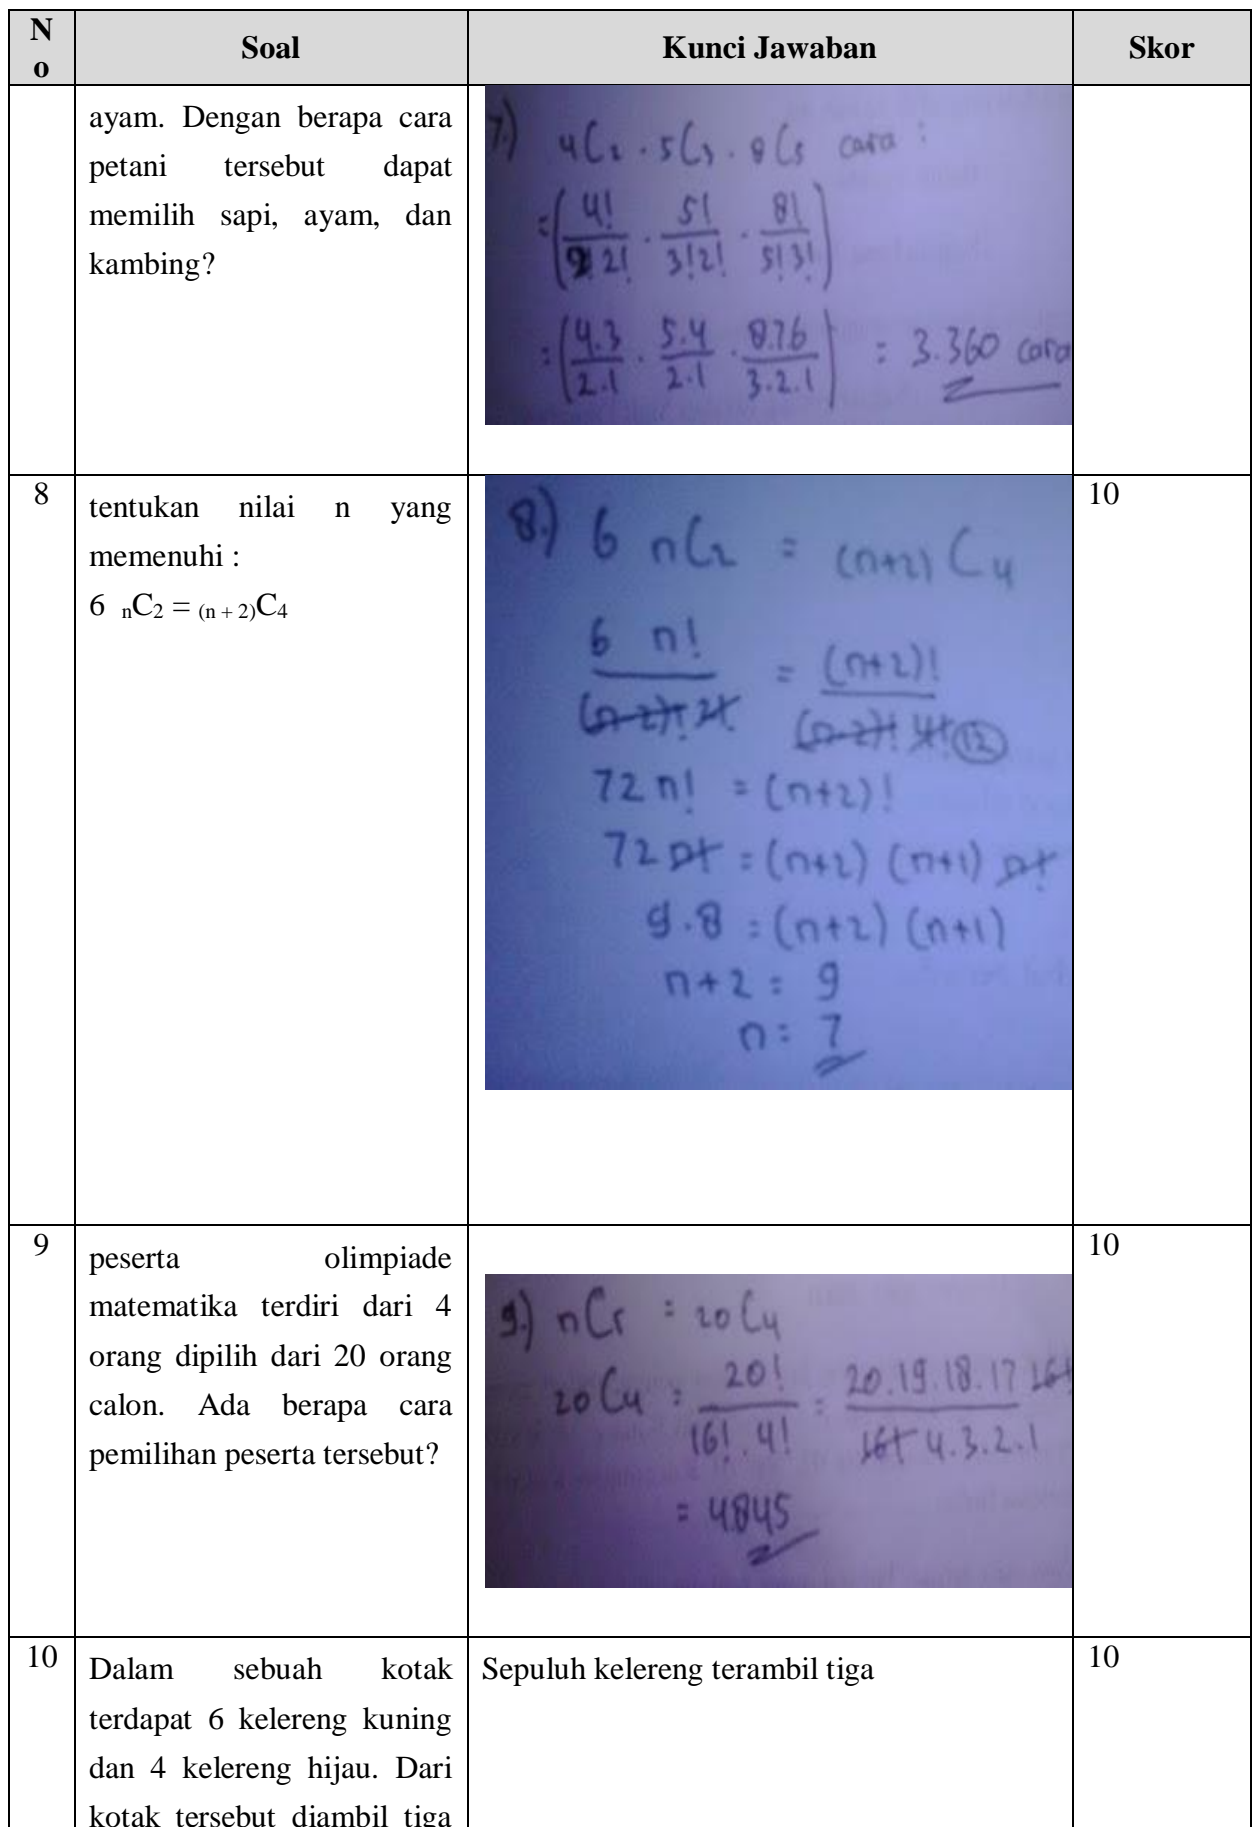 No Soal Kunci Jawaban Skor
ayam. Dengan berapa cara
petani tersebut dapat
memilih sapi, ayam, dan
kambing?
7.) 4C2 . 5C3 . 8C5 cara :
= (4!/2!2! . 5!/3!2! . 8!/5!3!)
= (4.3/2.1 . 5.4/2.1 . 8.7.6/3.2.1) = 3.360 cara
8
tentukan nilai n yang
memenuhi :
6 nC2 = (n + 2)C4
10
8.) 6 nC2 = (n+2)C4
6 n!/(n-2)! 2! = (n+2)!/(n-2)! 4! 12
72 n! = (n+2)!
72 n! = (n+2) (n+1) n!
9.8 = (n+2) (n+1)
n+2 = 9
n = 7
9
peserta olimpiade
matematika terdiri dari 4
orang dipilih dari 20 orang
calon. Ada berapa cara
pemilihan peserta tersebut?
10
9.) nCr = 20C4
20C4 = 20!/16!.4! = 20.19.18.17 16!/16! 4.3.2.1
= 4845
10
Dalam sebuah kotak
terdapat 6 kelereng kuning
dan 4 kelereng hijau. Dari
kotak tersebut diambil tiga
Sepuluh kelereng terambil tiga
10